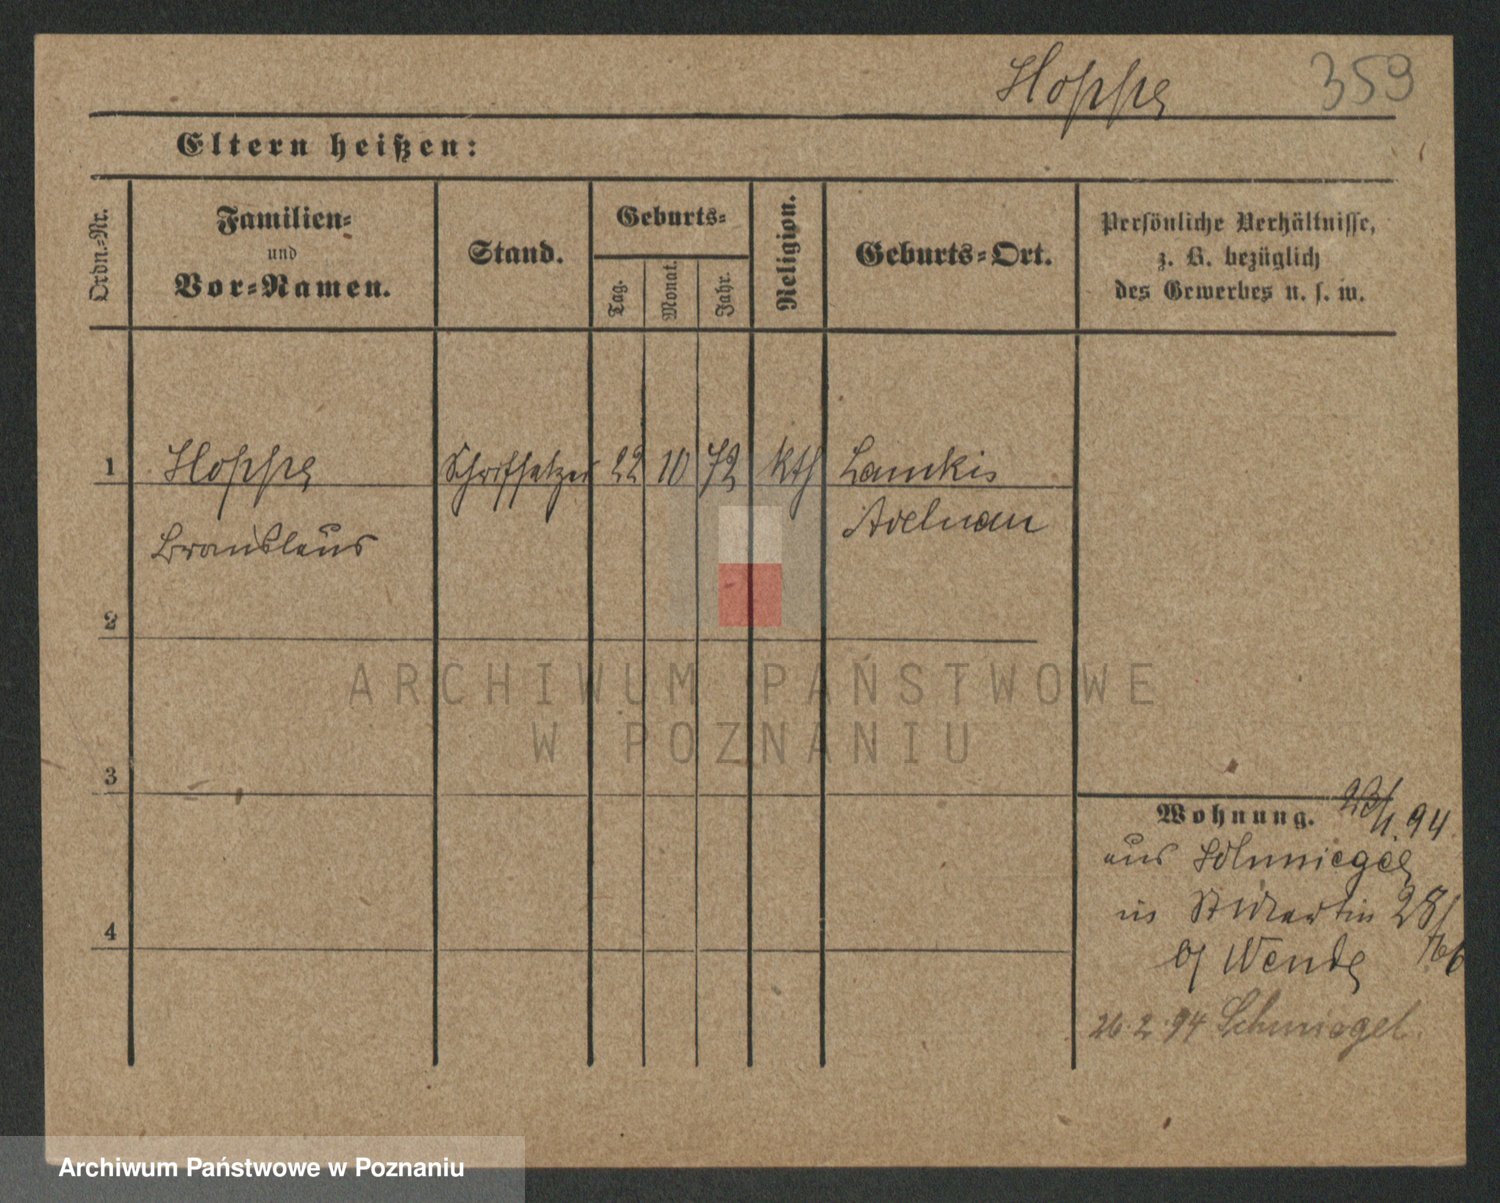 Hoppe 359
Eltern heißen:
Ordn.-Nr.
Familien-
und
Vor-Namen.
Stand.
Geburts-
Tag.
Monat.
Jahr.
Religion.
Geburts-Ort.
Persönliche Verhältnisse,
z. B. bezüglich
des Gewerbes u. s. w.
1 Hoppe Schriftsetzer 22 10 72 kth Lamkis
Adelnau
2
3
4
Wohnung. 23/1. 94
aus Schmiegel
in St Martin 28/
b/ Wende
26.2.94 Schmiegel
ARCHIWUM PAŃSTWOWE
W POZNANIU
Archiwum Państwowe w Poznaniu